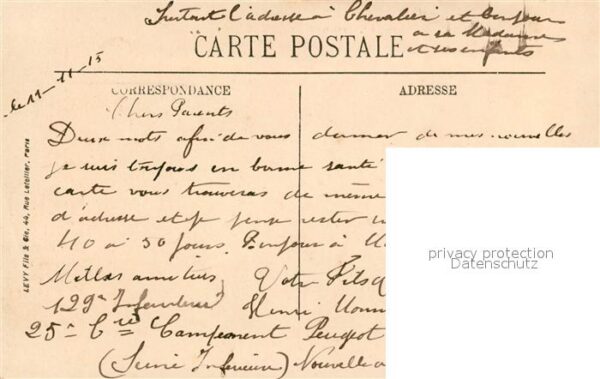 l'adresse à Chevalier et bonjour
a sa Madame
et ses enfants
CARTE POSTALE
le 11-11-15
CORRESPONDANCE
ADRESSE
Chers Parents
Deux mots afin de vous donner de mes nouvelles
je suis toujours en bonne santé
carte vous trouveras de même
d'adresse et je pense rester
40 a 50 jours. Bonjour à
Votre Fils
129e Infanterie Henri
25e Cie Campement Peugeot
(Seine Inferieure) Nouvelle a
LEVY Fils & Cie, 44, Rue Letellier, Paris
privacy protection
Datenschutz